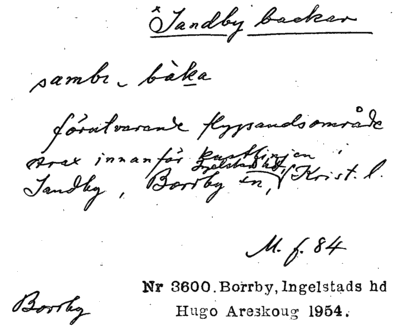 * Sandby backar
sambɩ - bàka
förutvarande flygsandsområde
strax innanför kustlinjen i
Ingelstad hd
Sandby, Borrby sn, Krist. l.
M. f. 84
Nr 3600. Borrby, Ingelstads hd
Hugo Areskoug 1954.
Borrby